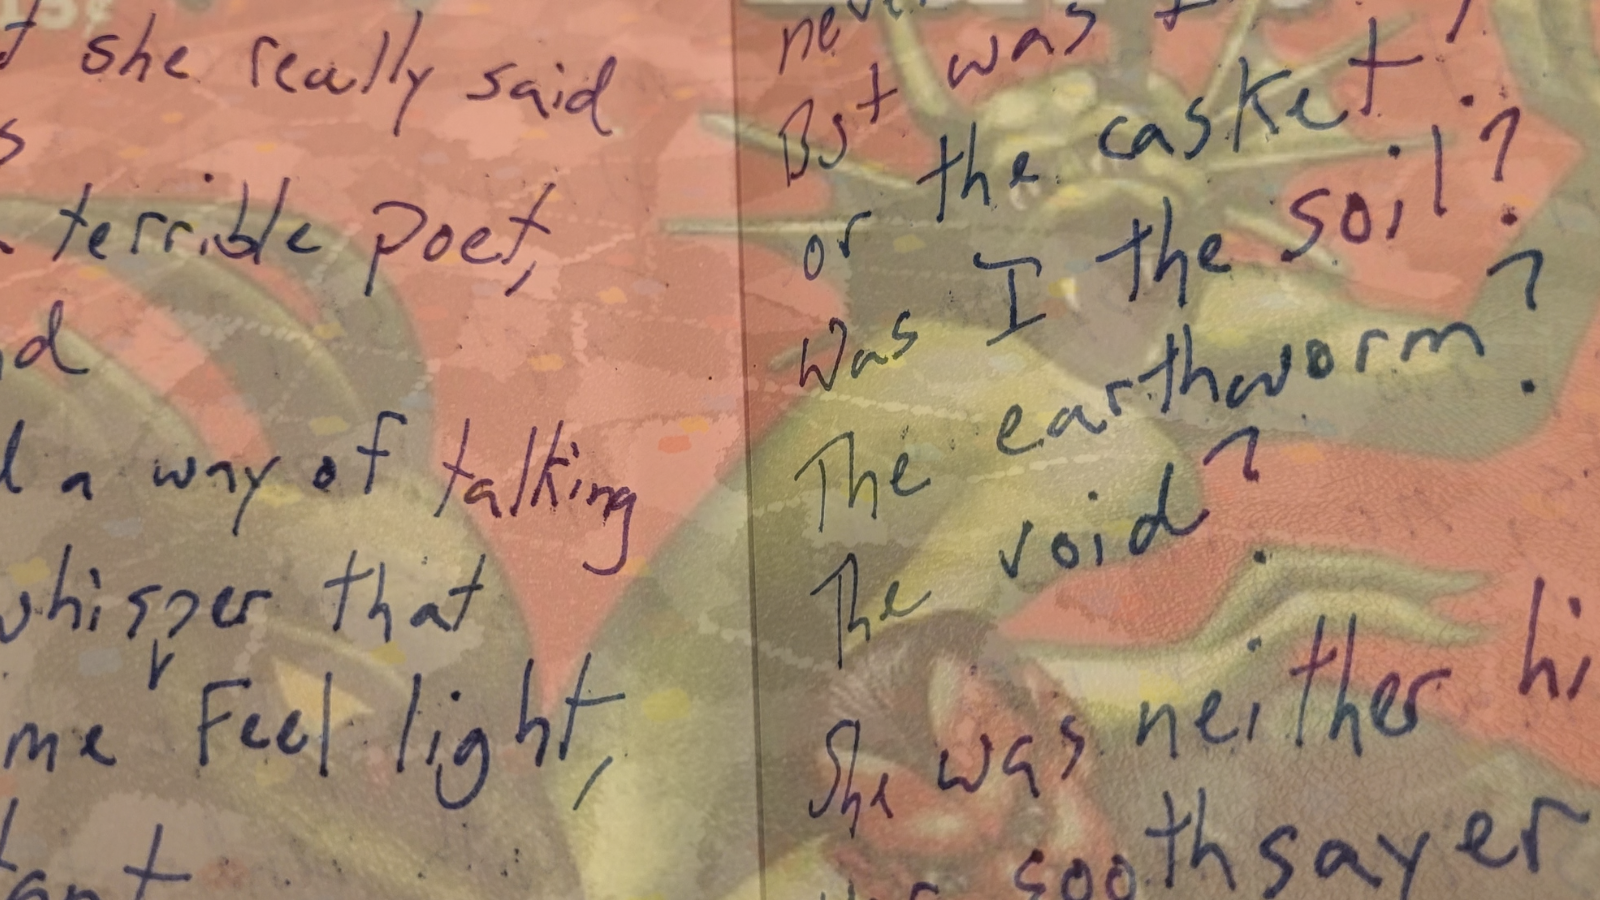 15¢
she really said
terrible poet,
a way of talking
whisper that
me Feel light,
But was
or the casket?
was I the soil?
The earthworm?
The void?
She was neither
soothsayer